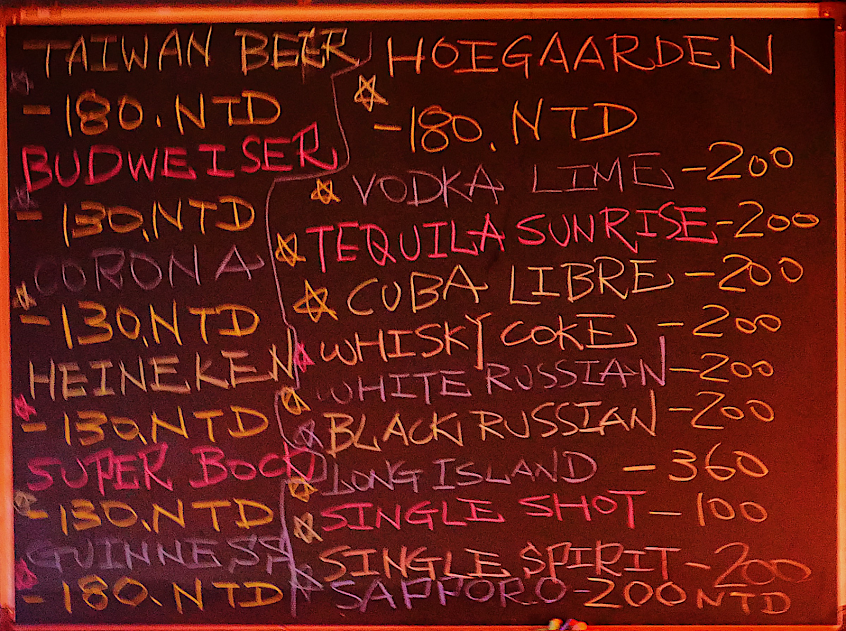 TAIWAN BEER
-180.NTD
BUDWEISER
-130.NTD
CORONA
-130.NTD
HEINEKEN
-130.NTD
SUPER BOCK
-130.NTD
GUINNESS
-180.NTD
HOEGAARDEN
-180.NTD
VODKA LIME-200
TEQUILA SUNRISE-200
CUBA LIBRE-200
WHISKY COKE-200
WHITE RUSSIAN-200
BLACK RUSSIAN-200
LONG ISLAND-360
SINGLE SHOT-100
SINGLE SPIRIT-200
SAPPORO-200NTD